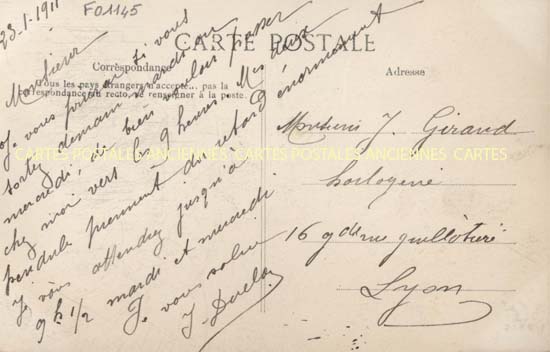 23-1-1911
FO1145
CARTE POSTALE
Correspondance
Tous les pays étrangers n'acceptent pas la
correspondance au recto, se renseigner à la poste.
Adresse
Monsieur
Je vous prierai si vous
sortez demain mardi ou
mercredi, de bien vouloir passer
chez moi vers les 9 heures. Mes deux
pendule prennent du retard énormément
Je vous attendez jusqu'à
9h 1/2 mardi et mercredi.
Je vous salue
CARTES POSTALES ANCIENNES CARTES POSTALES ANCIENNES CARTES
Monsieur J. Giraud
horlogerie
16 gde rue guillotière
Lyon